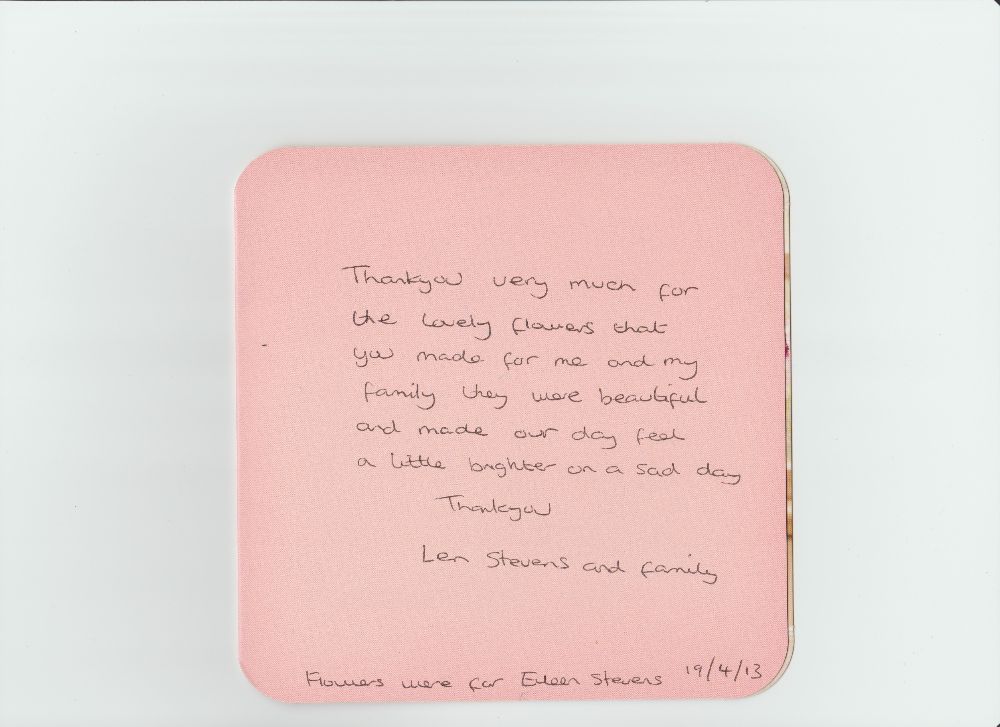 Thankyou very much for
the lovely flowers that
you made for me and my
family they were beautiful
and made our day feel
a little brighter on a sad day
Thankyou
Len Stevens and family
Flowers were for Eileen Stevens 19/4/13